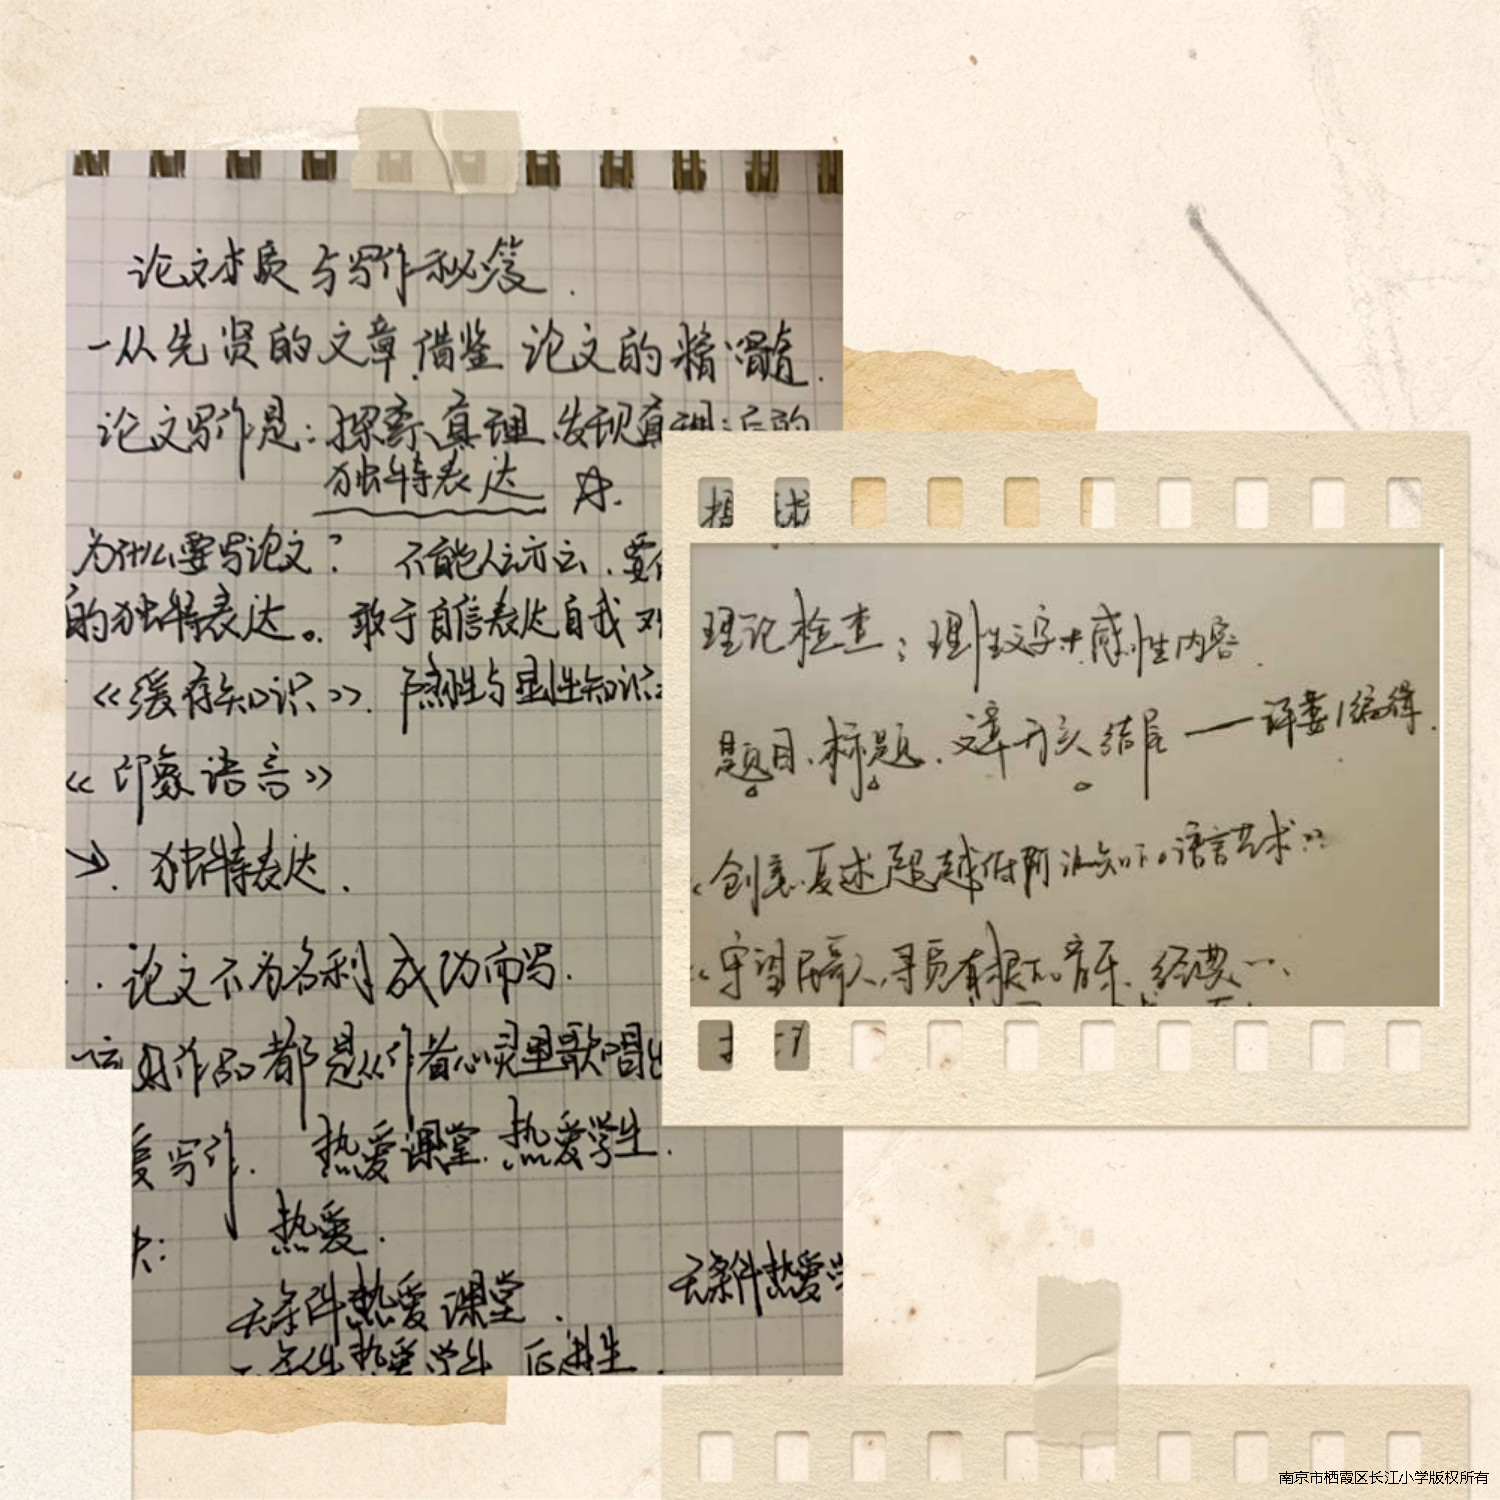 论文本质与写作秘笈.
一从先贤的文章借鉴论文的精髓.
论文写作是:探索真理、发现真理后的
独特表达 ☆.
为什么要写论文? 不能人云亦云.要
的独特表达。敢于自信表达自我
《缓存知识》.隐性与显性知识
《印象语言》
→.独特表达.
论文不为名利成功而写.
好作品都是从作者心灵里歌唱
爱写作. 热爱课堂.热爱学生.
热爱.
无条件热爱课堂. 无条件热爱学
无条件热爱学生 后进生.
描述
理论检查:理性文字+感性内容.
题目、标题、文章开头结尾——评委/编辑.
《创意复述超越低阶认知下的语言艺术》
《守望 寻觅有根的音乐、经典
南京市栖霞区长江小学版权所有